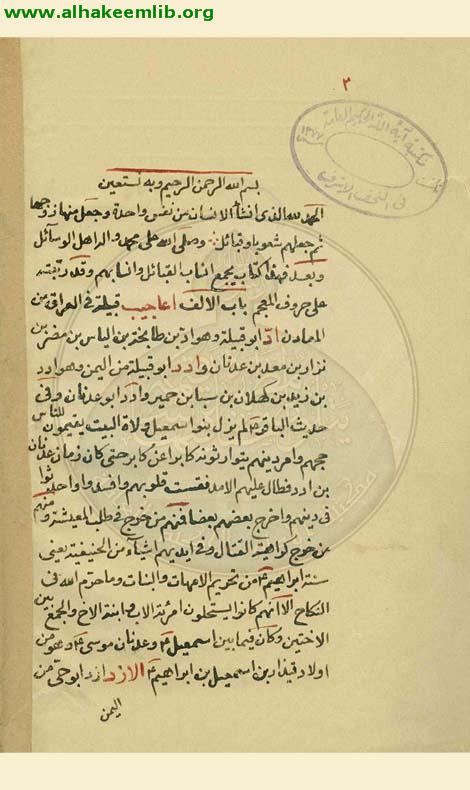 www.alhakeemlib.org
٣
مكتبة آية الله الحكيم العامة
في النجف الاشرف
بسم الله الرحمن الرحيم وبه نستعين
الحمد لله الذى انشأ الانسان من نفس واحدة وجعل منها زوجها
ثم جعلهم شعوبا وقبائل وصلى الله على محمد واله اهل الوسائل
وبعد فهذا كتاب يجمع انساب القبائل وانسابهم وقد رتبته
على حروف المعجم باب الالف اعاجيب قبيلة فى العراق من
المعادن ادّ ابو قبيلة وهو اد بن طابخة بن الياس بن مضر بن
نزار بن معد بن عدنان وادد ابو قبيلة من اليمن وهو ادد
بن زيد بن كهلان بن سبا بن حمير وادد ابو عدنان وفى
حديث الباقر لم يزل بنو اسمعيل ولاة البيت يقيمون للناس
حجهم وامر دينهم يتوارثونه كابرا عن كابر حتى كان زمان عدنان
بن ادد فطال عليهم الامد فقست قلوبهم وافسدوا واحدثوا
فى دينهم واخرج بعضهم بعضا فمنهم من خرج فى طلب المعيشة ومنهم
من خرج كراهية القتال وفى ايديهم اشياء من الحنيفية يعنى
سنة ابراهيم من تحريم الامهات والبنات وما حرم الله فى
النكاح الا انهم كانوا يستحلون امرئة الاب وابنة الاخ والجمع بين
الاختين وكان فيما بين اسمعيل وعدنان موسى وهو من
اولاد قيذار بن اسمعيل بن ابراهيم الازد ازد ابو حى من
اليمن